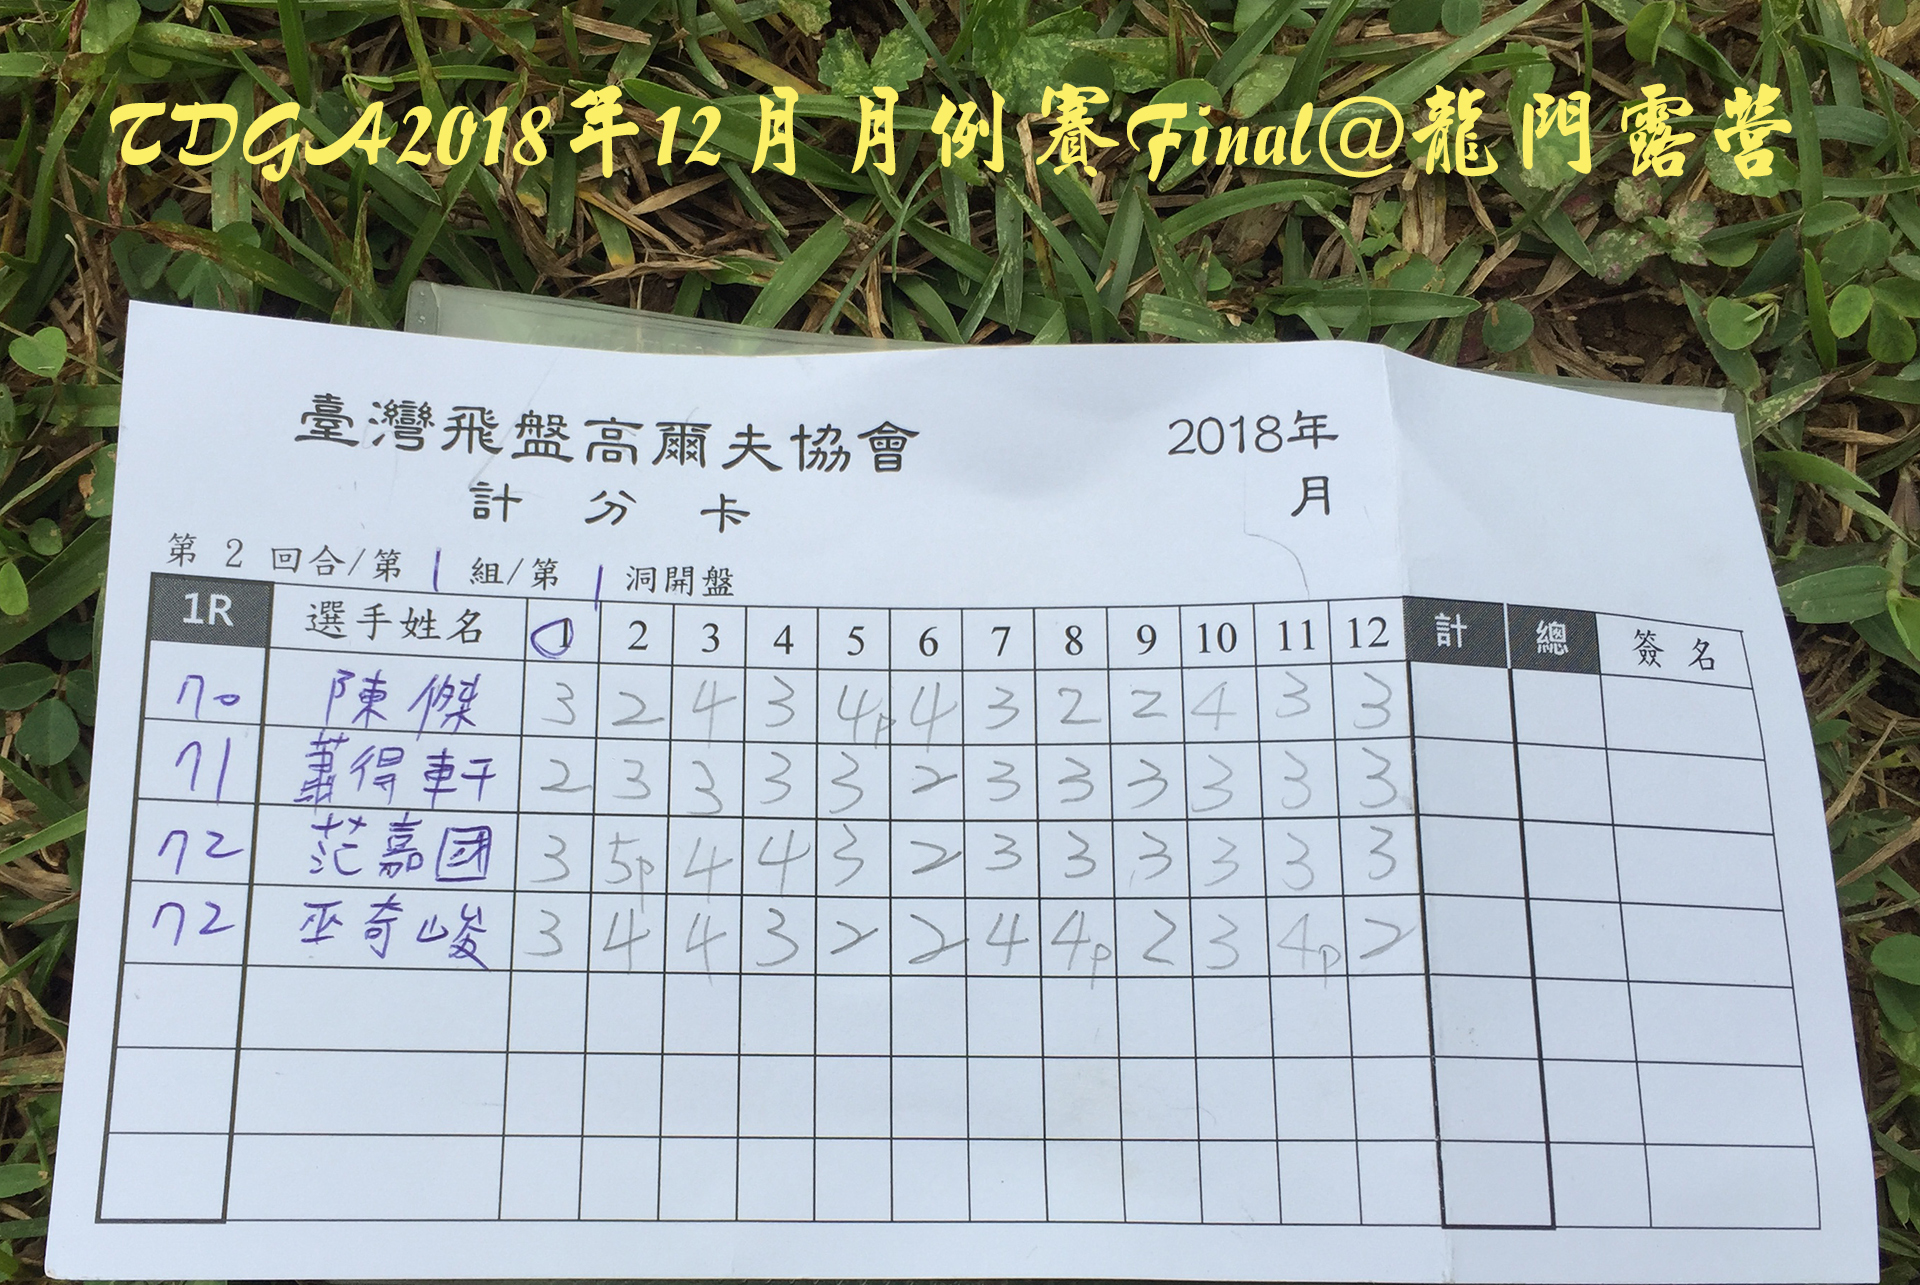 TDGA2018年12月月例賽Final@龍門露營
臺灣飛盤高爾夫協會 2018年
計分卡 月
第 2 回合/第 1 組/第 1 洞開盤
1R 選手姓名 1 2 3 4 5 6 7 8 9 10 11 12 計 總 簽名
70 陳傑 3 2 4 3 4p 4 3 2 2 4 3 3
71 蕭得軒 2 3 3 3 3 2 3 3 3 3 3 3
72 范嘉國 3 5p 4 4 3 2 3 3 3 3 3 3
72 巫奇峻 3 4 4 3 2 2 4 4p 2 3 4p 2